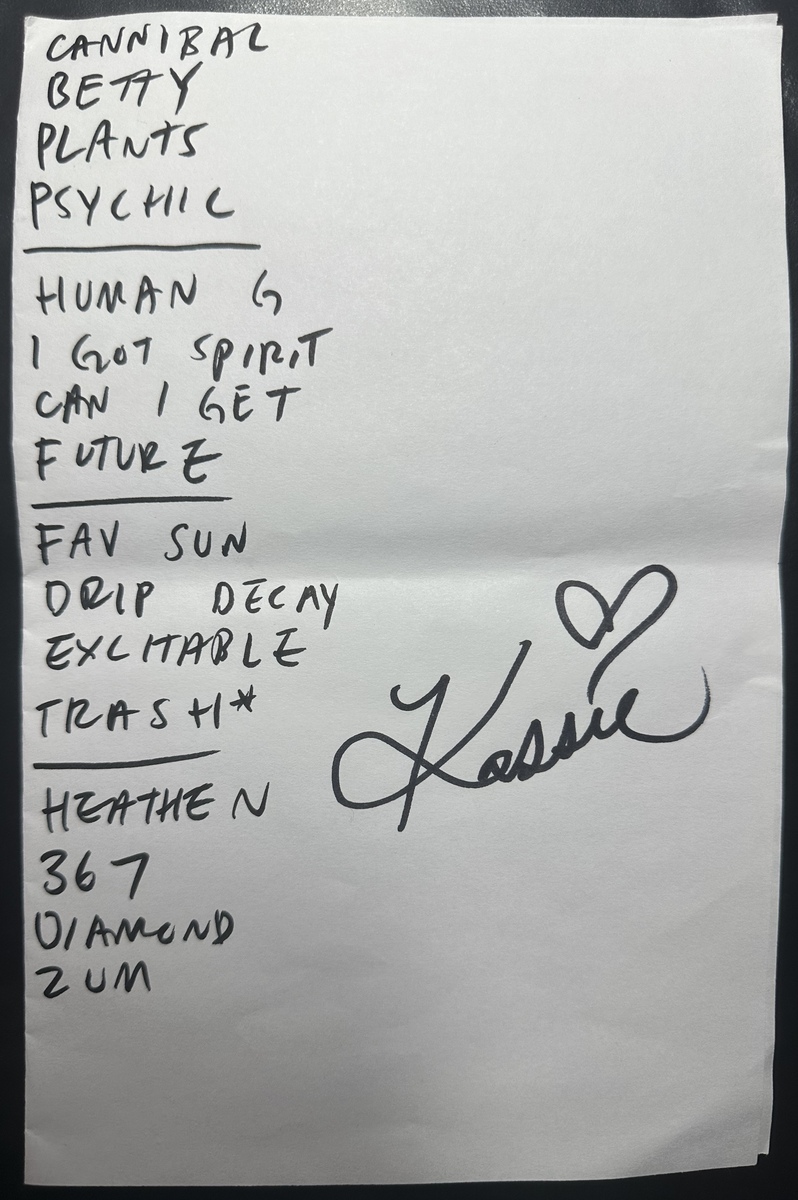 CANNIBAL
BETTY
PLANTS
PSYCHIC
HUMAN G
I GOT SPIRIT
CAN I GET
FUTURE
FAV SUN
DRIP DECAY
EXCITABLE
TRASH*
Kassie
HEATHEN
367
DIAMOND
ZUM